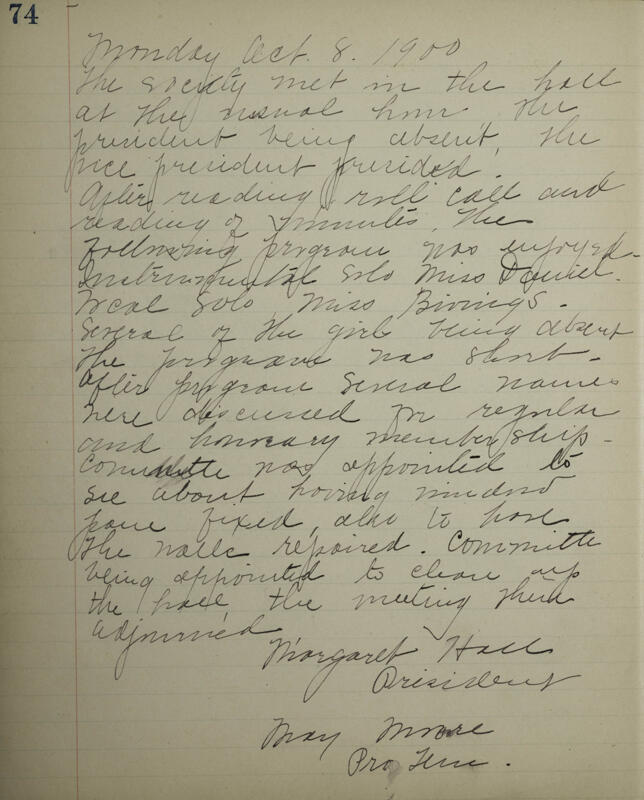 74
Monday Oct. 8. 1900
The society met in the hall
at the usual hour the
president being absent, the
vice president presided.
After reading roll call and
reading of minutes, the
following program was enjoyed.
Instrumental Solo Miss Daniel.
Vocal Solo, Miss Bivings.
Several of the girls being absent
the program was short.
After program several names
were discussed for regular
and honorary membership.
Committe was appointed to
see about having window
pane fixed, also to have
the walls repaired. Committe
being appointed to clean up
the hall the meeting then
adjourned
Margaret Hall
President
May Moore
Pro Tem.